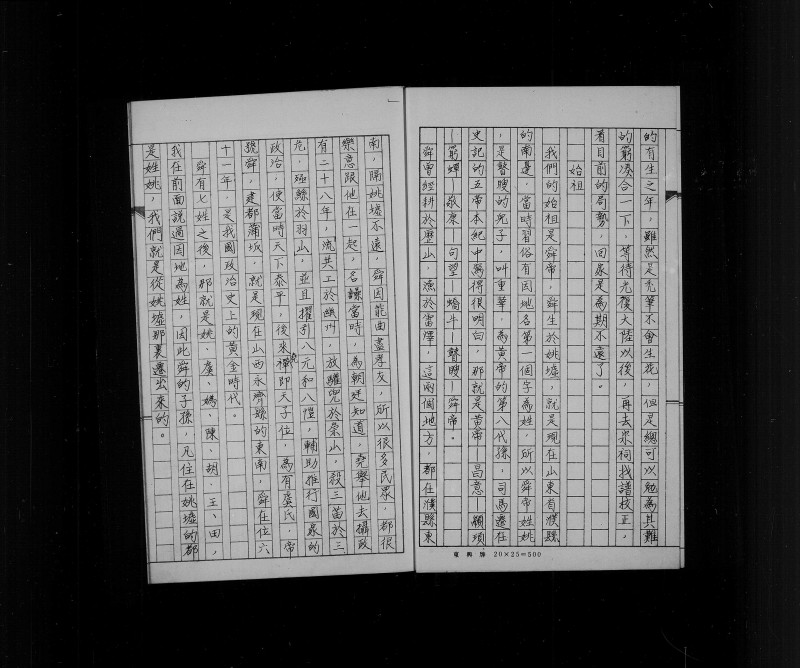 的有生之年，雖然是禿筆不會生花，但是總可以勉為其難
的窮湊合一下，等待光復大陸以後，再去宗祠找譜校正，
看目前的局勢，回家是為期不遠了。
始祖
我們的始祖是舜帝，舜生於姚墟，就是現在山東省濮縣
的南邊，當時習俗有因地名第一個字為姓，所以舜帝姓姚
，是瞽瞍的兒子，叫重華，為黃帝的第八代孫，司馬遷在
史記的五帝本紀中寫得很明白，那就是黃帝—昌意—顓頊
—窮蟬—敬康—句望—蟜牛—瞽瞍—舜帝。
舜曾經耕於歷山，漁於雷澤，這兩個地方，都在濮縣東
南，隔姚墟不遠，舜因能曲盡孝友，所以很多民眾，都很
樂意跟他在一起，名譟當時，為朝廷知道，堯舉他去攝政
有二十八年，流共工於幽州，放驩兜於崇山，殺三苗於三
危，殛鯀於羽山，並且擢引八元和八愷，輔助推行國家的
政治，使當時天下泰平，後來禪即天子位，為有虞氏，帝
號舜，建都蒲坂，就是現在山西永濟縣的東南，舜在位六
十一年，是我國政治史上的黃金時代。
舜有七姓之後，那就是姚、虞、媯、陳、胡、王、田，
我在前面說過因地為姓，因此舜的子孫，凡住在姚墟的都
是姓姚，我們就是從姚墟那裏遷出來的。
20×25=500